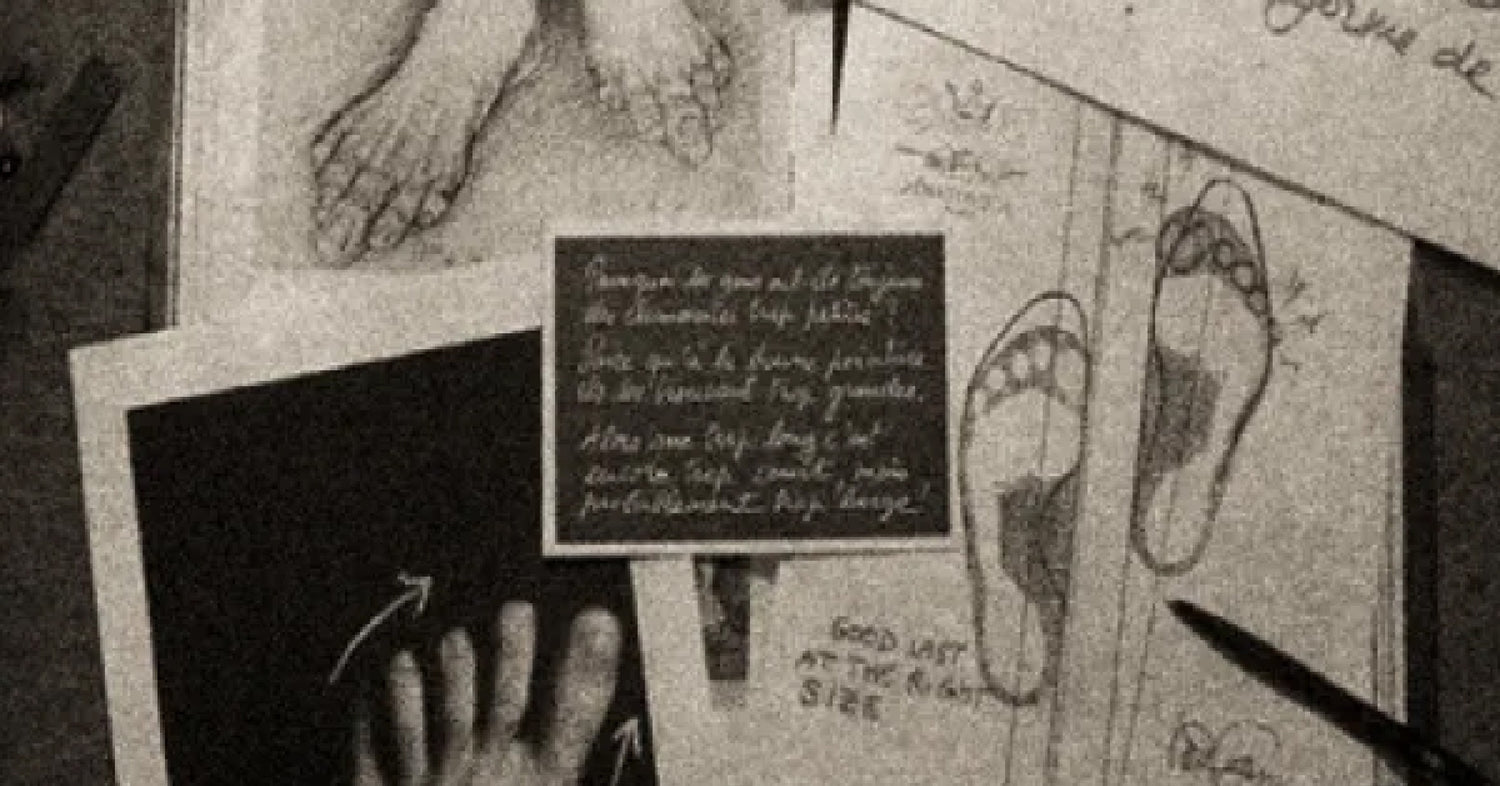 forme de
Pourquoi les gens ont-ils toujours
des chaussures trop petites ?
qu'à la bonne pointure
ils les trouvent trop grandes.
Alors que trop long c'est
encore trop court mais
probablement trop large !
GOOD LAST
AT THE RIGHT
SIZE